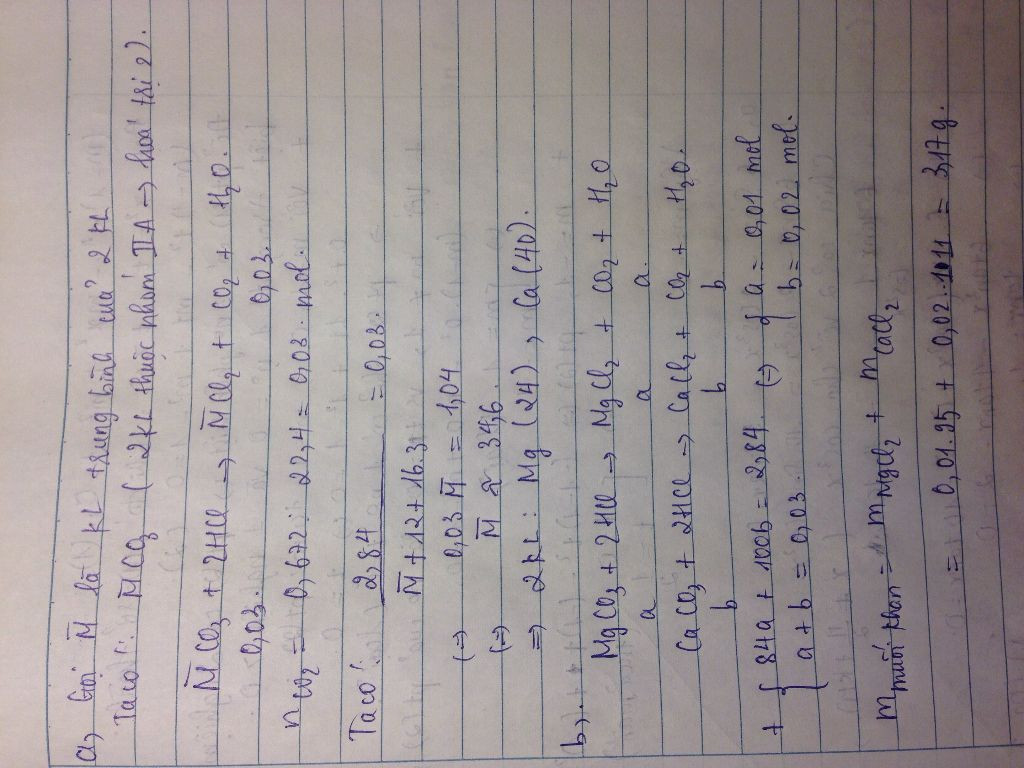 a, Gọi M̄ là KL trung bình của 2 KL
Ta có: M̄CO₃ ( 2KL thuộc nhóm IIA → hoá trị 2).
M̄CO₃ + 2HCl → M̄Cl₂ + CO₂ + H₂O.
0,03. 0,03.
nCO₂ = 0,672 : 22,4 = 0,03 mol.
Ta có: 2,84 / M̄ + 12 + 16.3 = 0,03.
(=) 0,03 M̄ = 1,04
(=) M̄ ≈ 34,6.
=) 2KL : Mg (24) , Ca (40).
b, MgCO₃ + 2HCl → MgCl₂ + CO₂ + H₂O
a a a.
CaCO₃ + 2HCl → CaCl₂ + CO₂ + H₂O.
b b b
+ { 84a + 100b = 2,84. (=) { a = 0,01 mol
a + b = 0,03. b = 0,02 mol.
m muối khan = mMgCl₂ + mCaCl₂
= 0,01.95 + 0,02.111 = 3,17g.